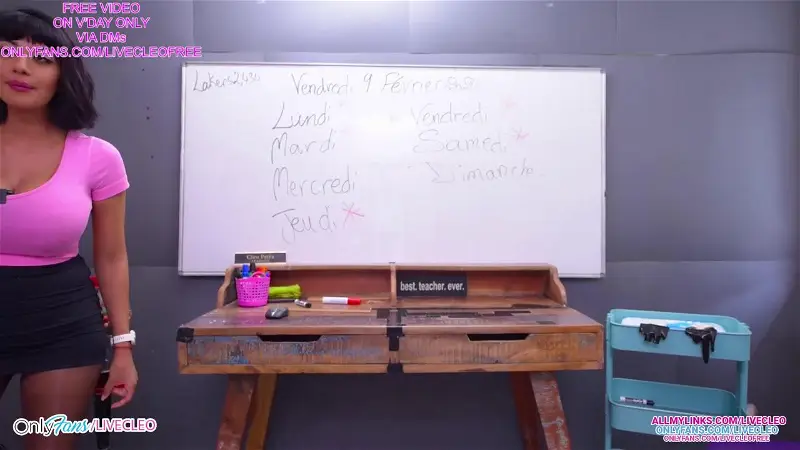 FREE VIDEO
ON V'DAY ONLY
VIA DMs
ONLYFANS.COM/LIVECLEOFREE
Vendredi 9 Février
Lundi
Mardi
Mercredi
Jeudi *
Vendredi *
Samedi *
Dimanche
best. teacher. ever.
OnlyFans/LIVECLEO
ALLMYLINKS.COM/LIVECLEO
ONLYFANS.COM/LIVECLEO
ONLYFANS.COM/LIVECLEOFREE